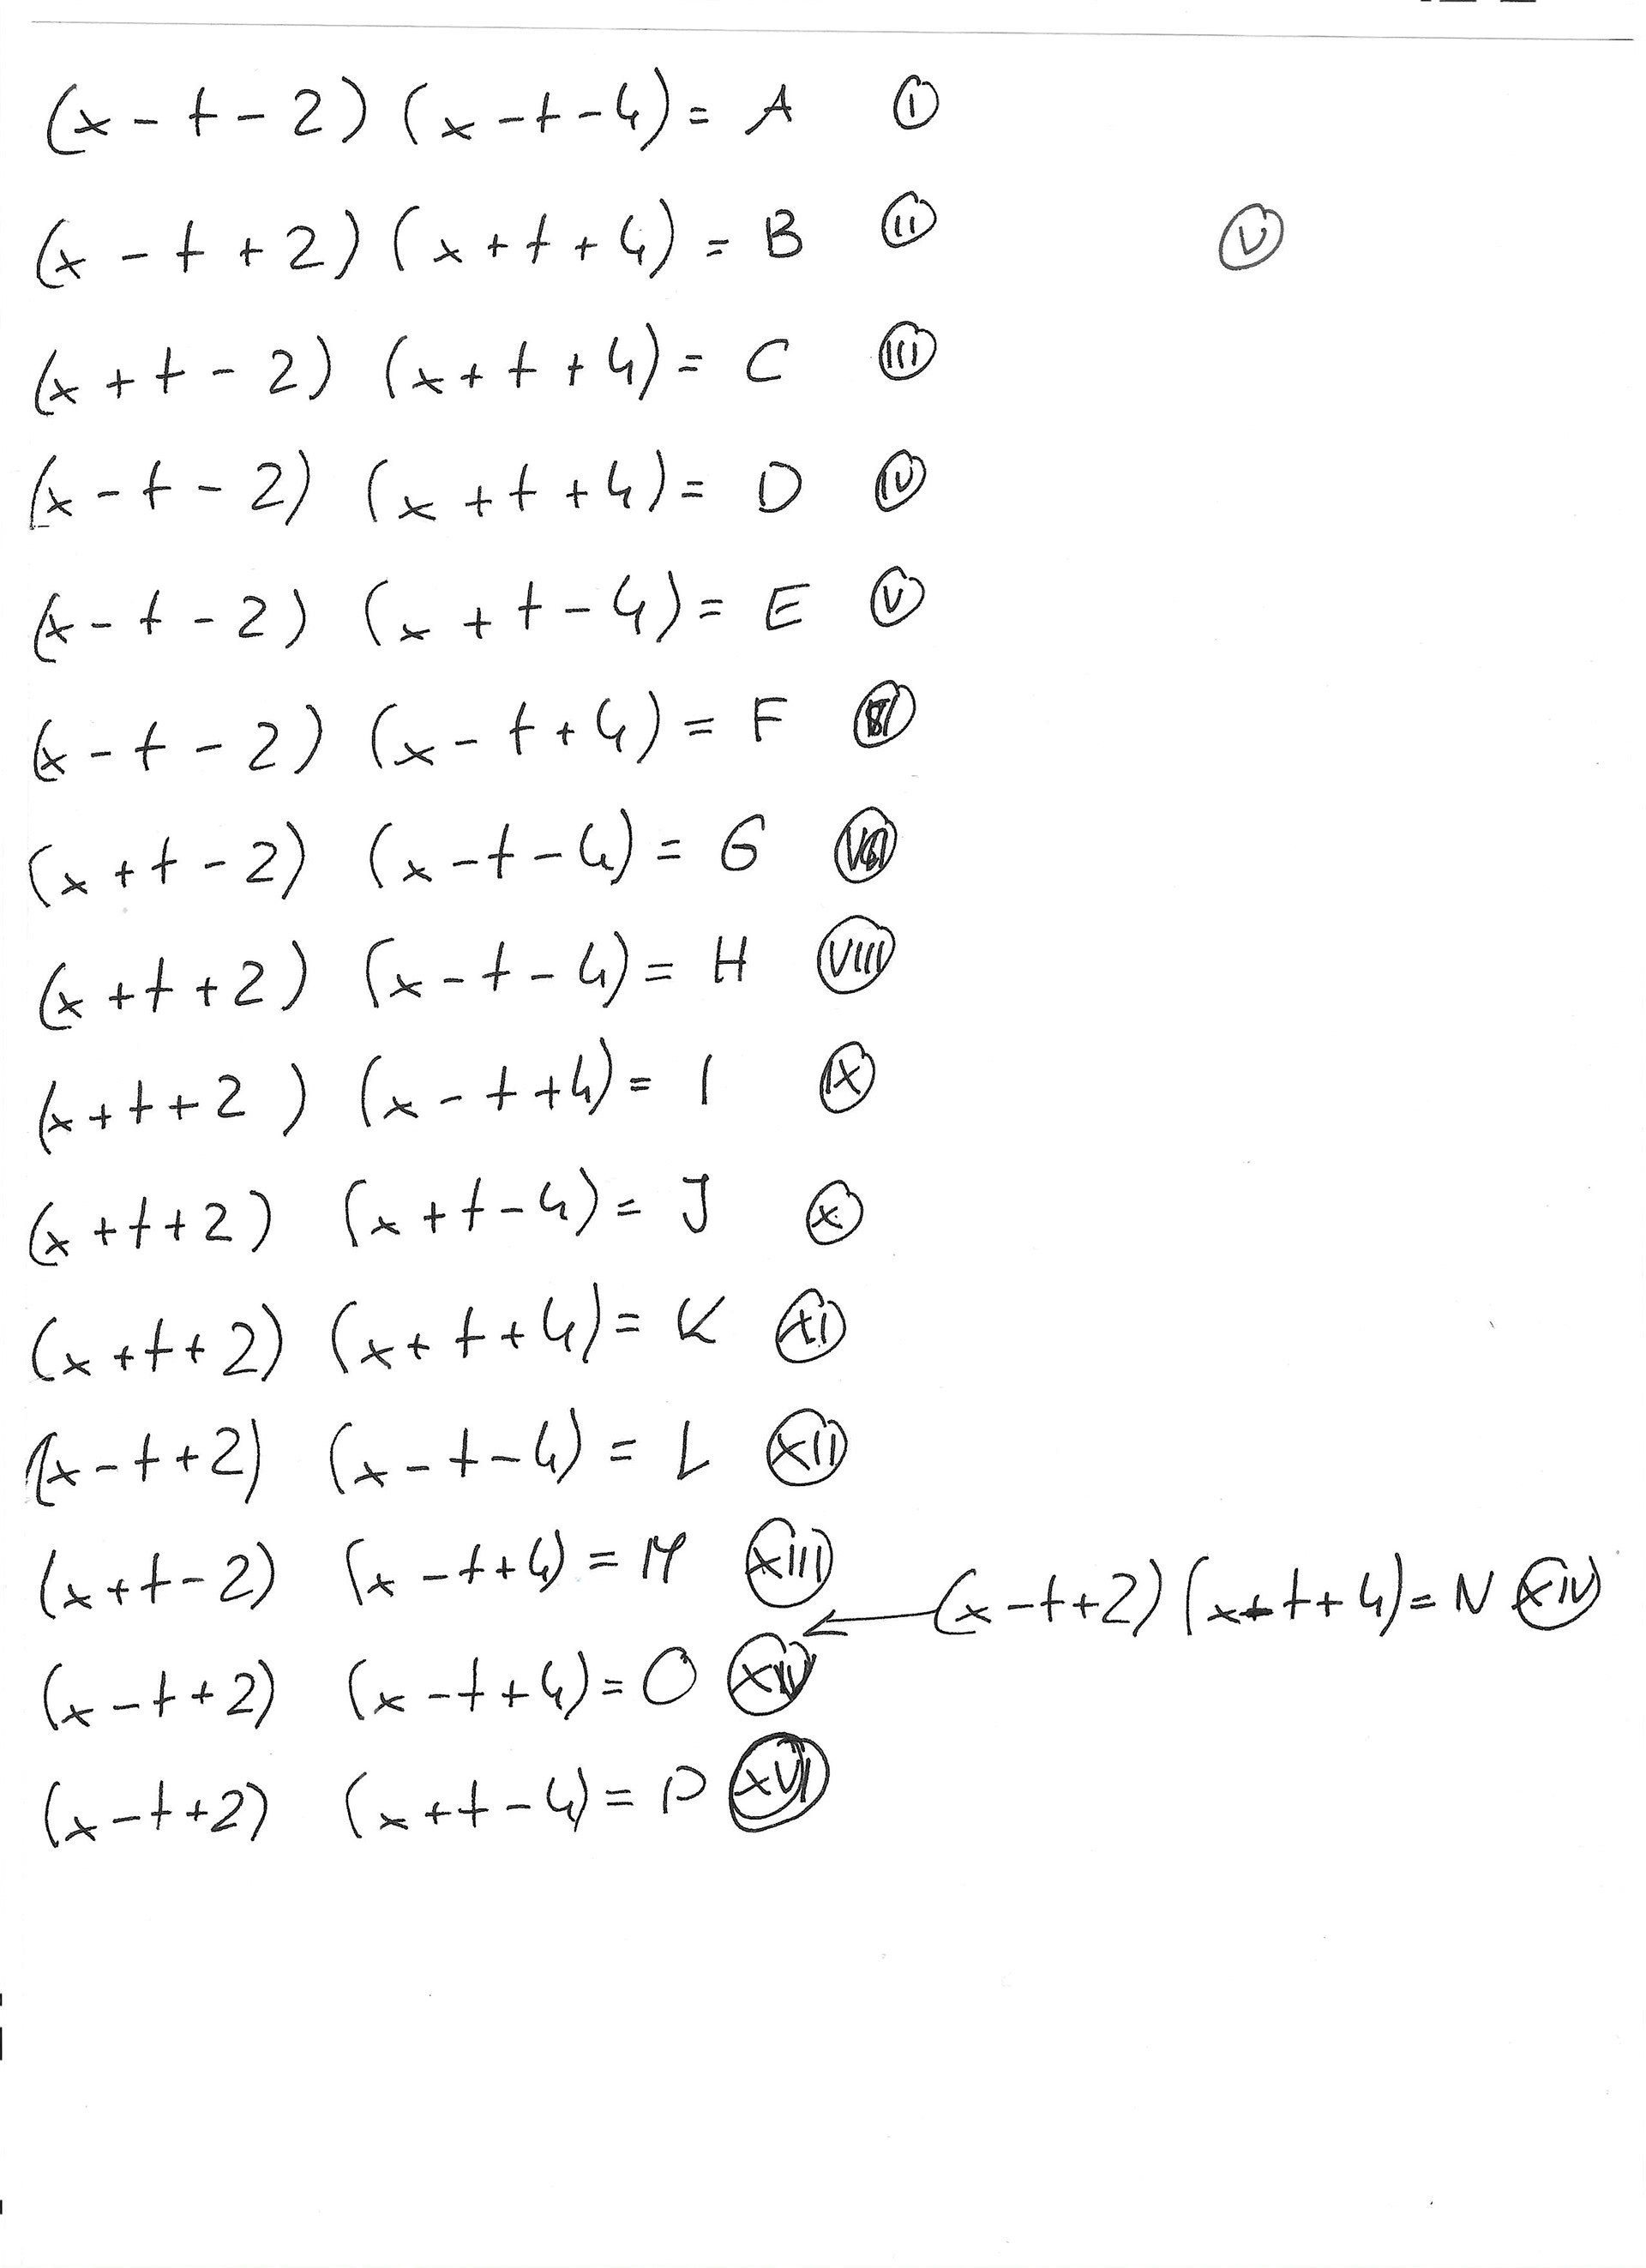 (x - t - 2) (x - t - 4) = A I
(x - t + 2) (x + t + 4) = B II
V
(x + t - 2) (x + t + 4) = C III
(x - t - 2) (x + t + 4) = D IV
(x - t - 2) (x + t - 4) = E V
(x - t - 2) (x - t + 4) = F
(x + t - 2) (x - t - 4) = G
(x + t + 2) (x - t - 4) = H VIII
(x + t + 2) (x - t + 4) = I IX
(x + t + 2) (x + t - 4) = J X
(x + t + 2) (x + t + 4) = K XI
(x - t + 2) (x - t - 4) = L XII
(x + t - 2) (x - t + 4) = M XIII
(x - t + 2) (x + t + 4) = N XIV
(x - t + 2) (x - t + 4) = O XV
(x - t + 2) (x + t - 4) = P XVI